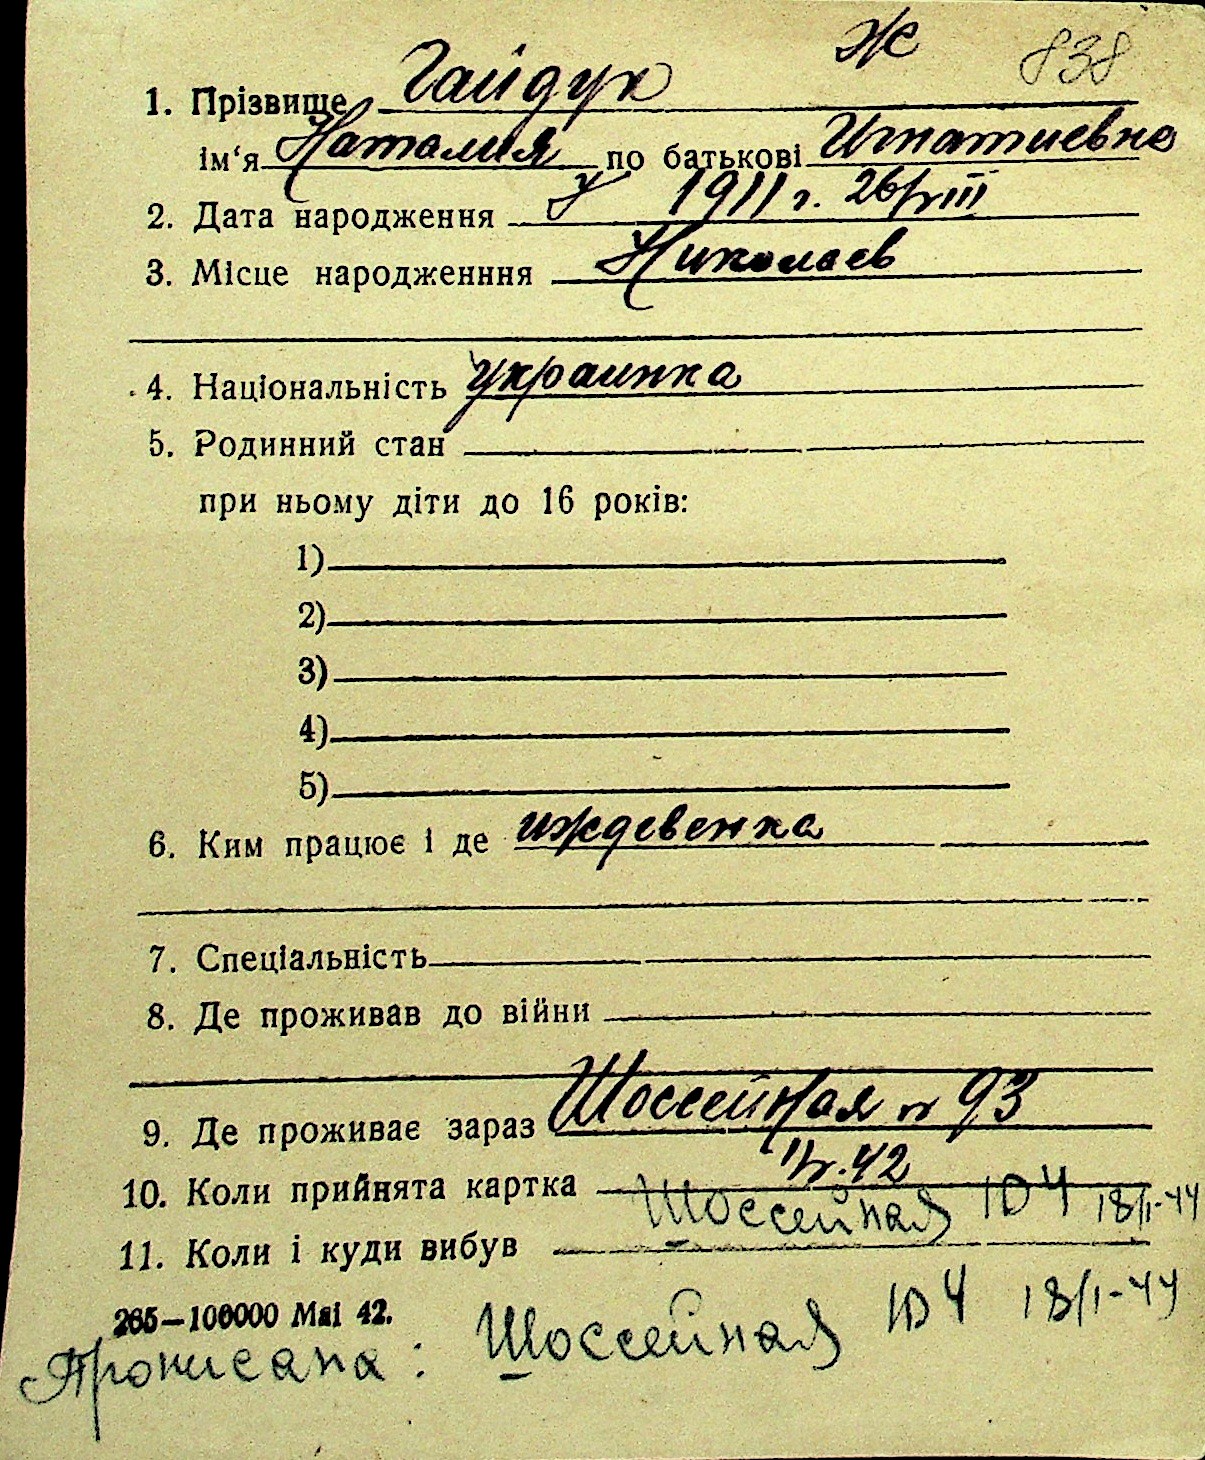 Ж 838
1. Прізвище Гайдук
ім'я Наталия по батькові Игнатиевна
2. Дата народження 1911 г. 26/VIII
3. Місце народженння Николаев
4. Національність украинка
5. Родинний стан
при ньому діти до 16 років:
1)
2)
3)
4)
5)
6. Ким працює і де иждевенка
7. Спеціальність
8. Де проживав до війни
9. Де проживає зараз Шоссейная № 93
10. Коли прийнята картка 42
Шоссейная 104 18/I-44
11. Коли і куди вибув
265—100000 Маі 42.
Прописана: Шоссейная 104 18/I-44